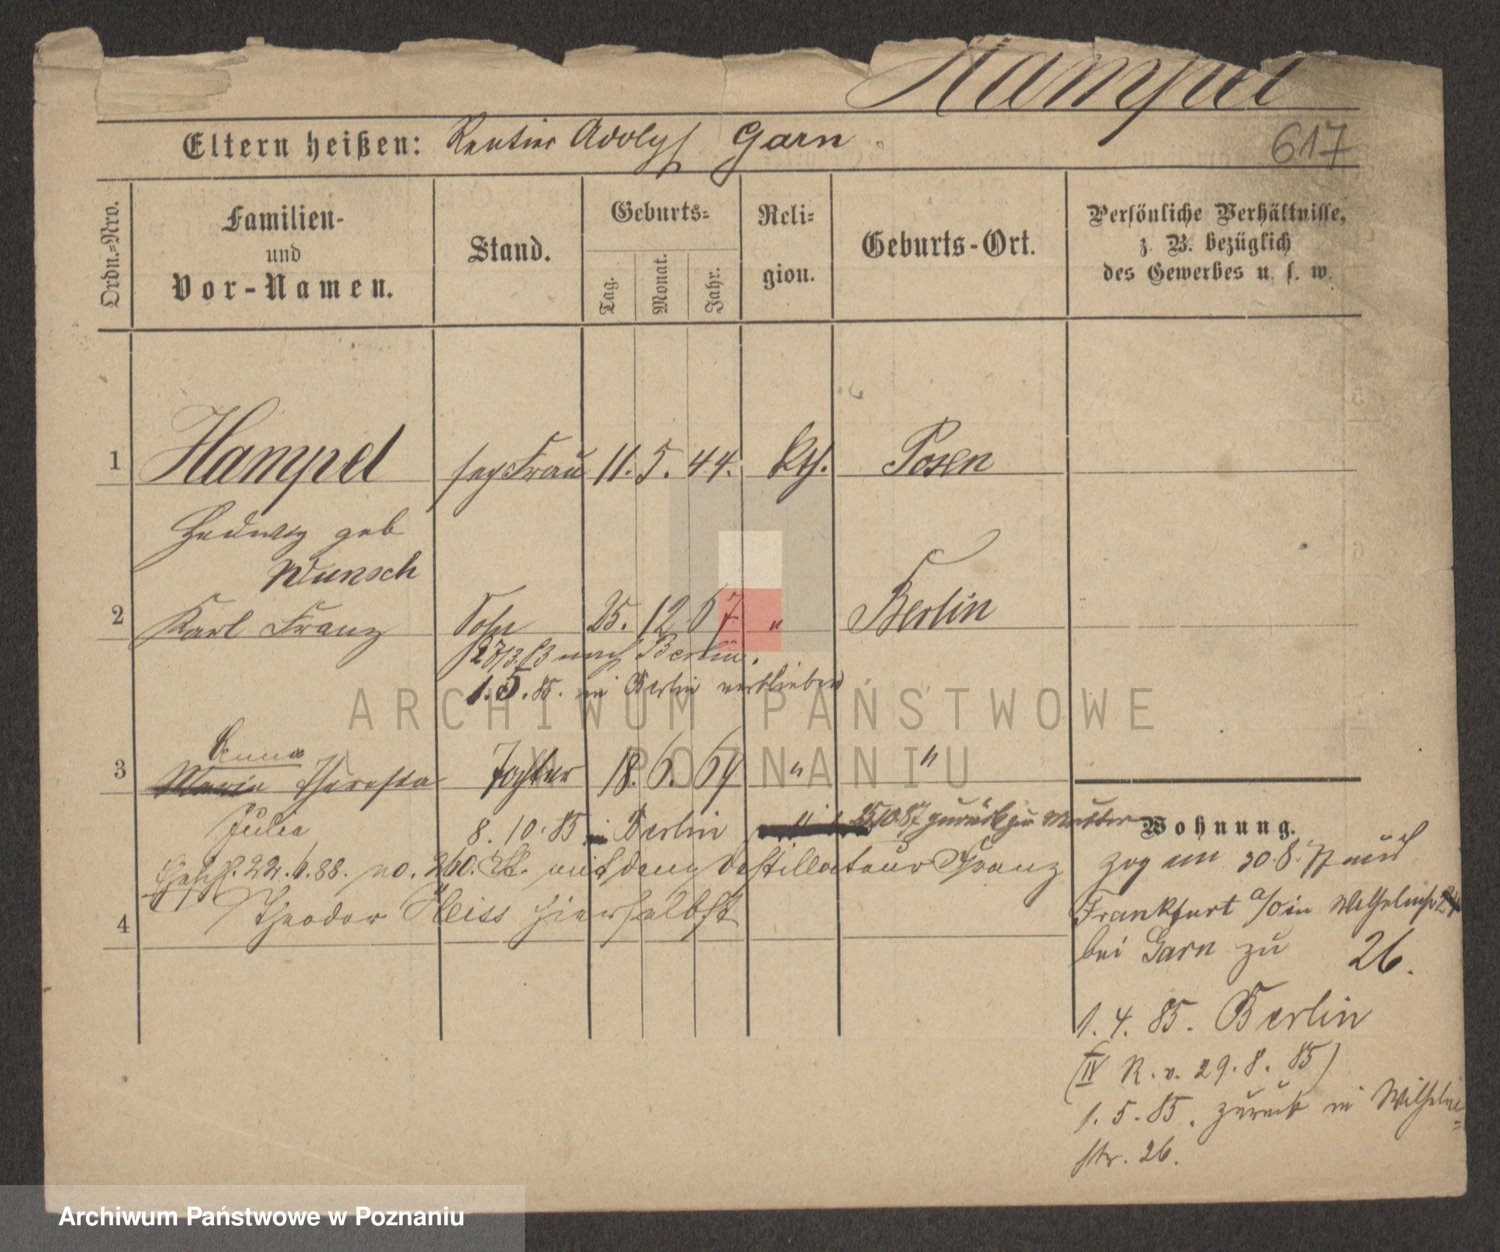 Hampel
Eltern heißen: Rentier Adolph Garn
617
Ordn.-Nro.
Familien-
und
Vor-Namen.
Stand.
Geburts-
Tag. Monat. Jahr.
Reli-
gion.
Geburts-Ort.
Persönliche Verhältnisse,
z. B. bezüglich
des Gewerbes u. s. w.
1 Hampel sep Frau 11. 5. 44. kth. Posen
Hedwig geb
Wunsch
2 Karl Franz Sohn 25. 12 67 " Berlin
nach Berlin.
1. 5. 85. in Berlin verblieben
Anna
3 Marie Theresia Tochter 18. 6. 69 " "
Julia 8. 10. 85 in Berlin 25/10 87 zurück zu Mutter
Gesch. 22. 6. 88. no. 260. mit dem Destillateur Franz
Theodor Heiss hierselbst
4
Wohnung.
zog am 30 8. 77 aus
Frankfurt a/O in Wilhelmstr. 24
bei Garn zu 26.
1. 4. 85. Berlin
(IV R. v. 29. 8. 85)
1. 5. 85. zurück in Wilhelm=
str. 26.
ARCHIWUM PAŃSTWOWE
W POZNANIU
Archiwum Państwowe w Poznaniu